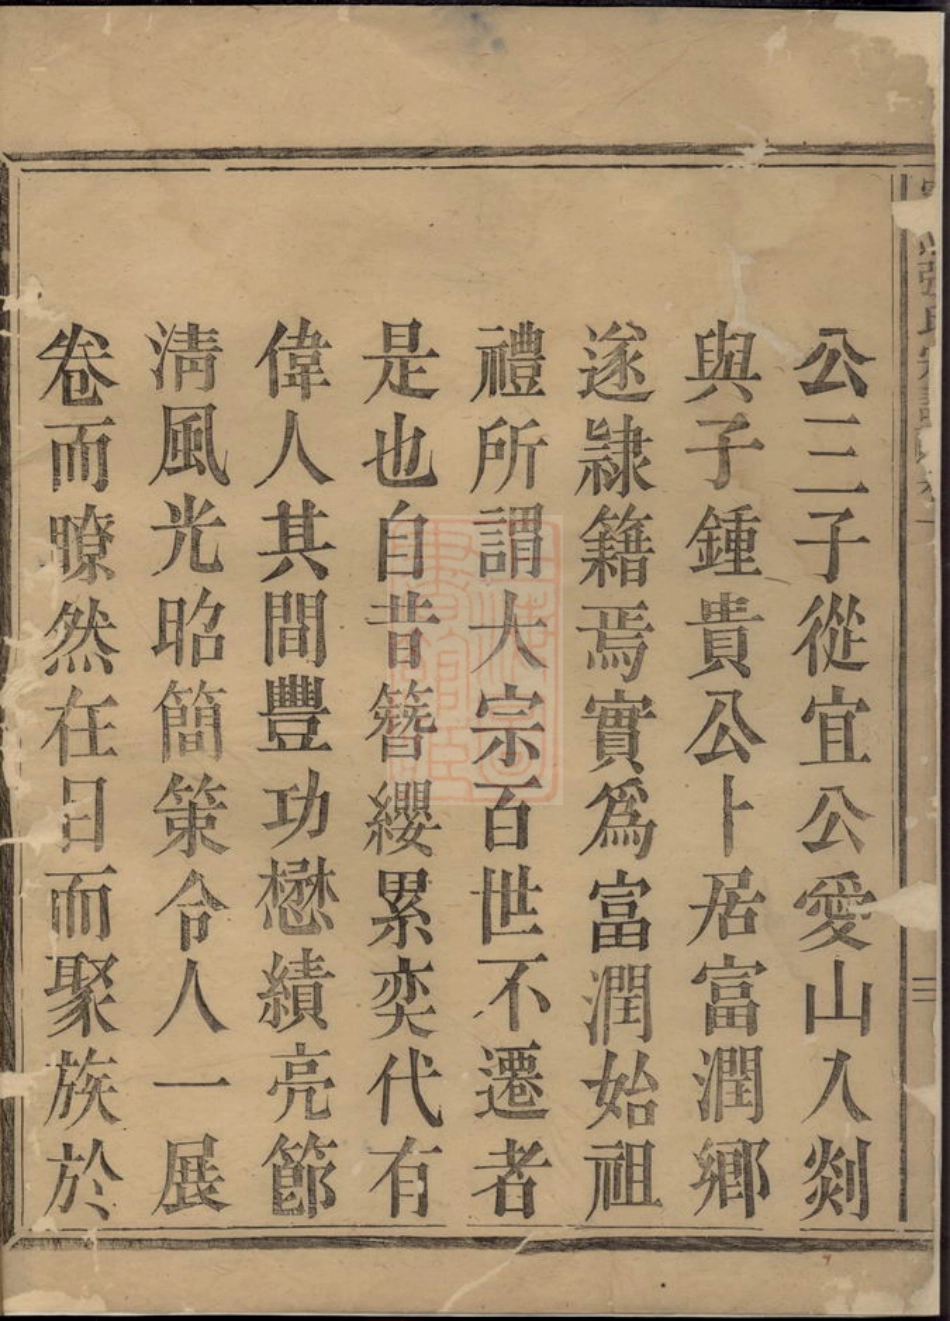 公三子從宜公愛山入剡
與子鍾貴公卜居富潤鄉
遂隷籍焉實爲富潤始祖
禮所謂大宗百世不遷者
是也自昔簪纓累奕代有
偉人其間豐功懋績亮節
淸風光昭簡策令人一展
卷而瞭然在目而聚族於
張氏宗譜
三